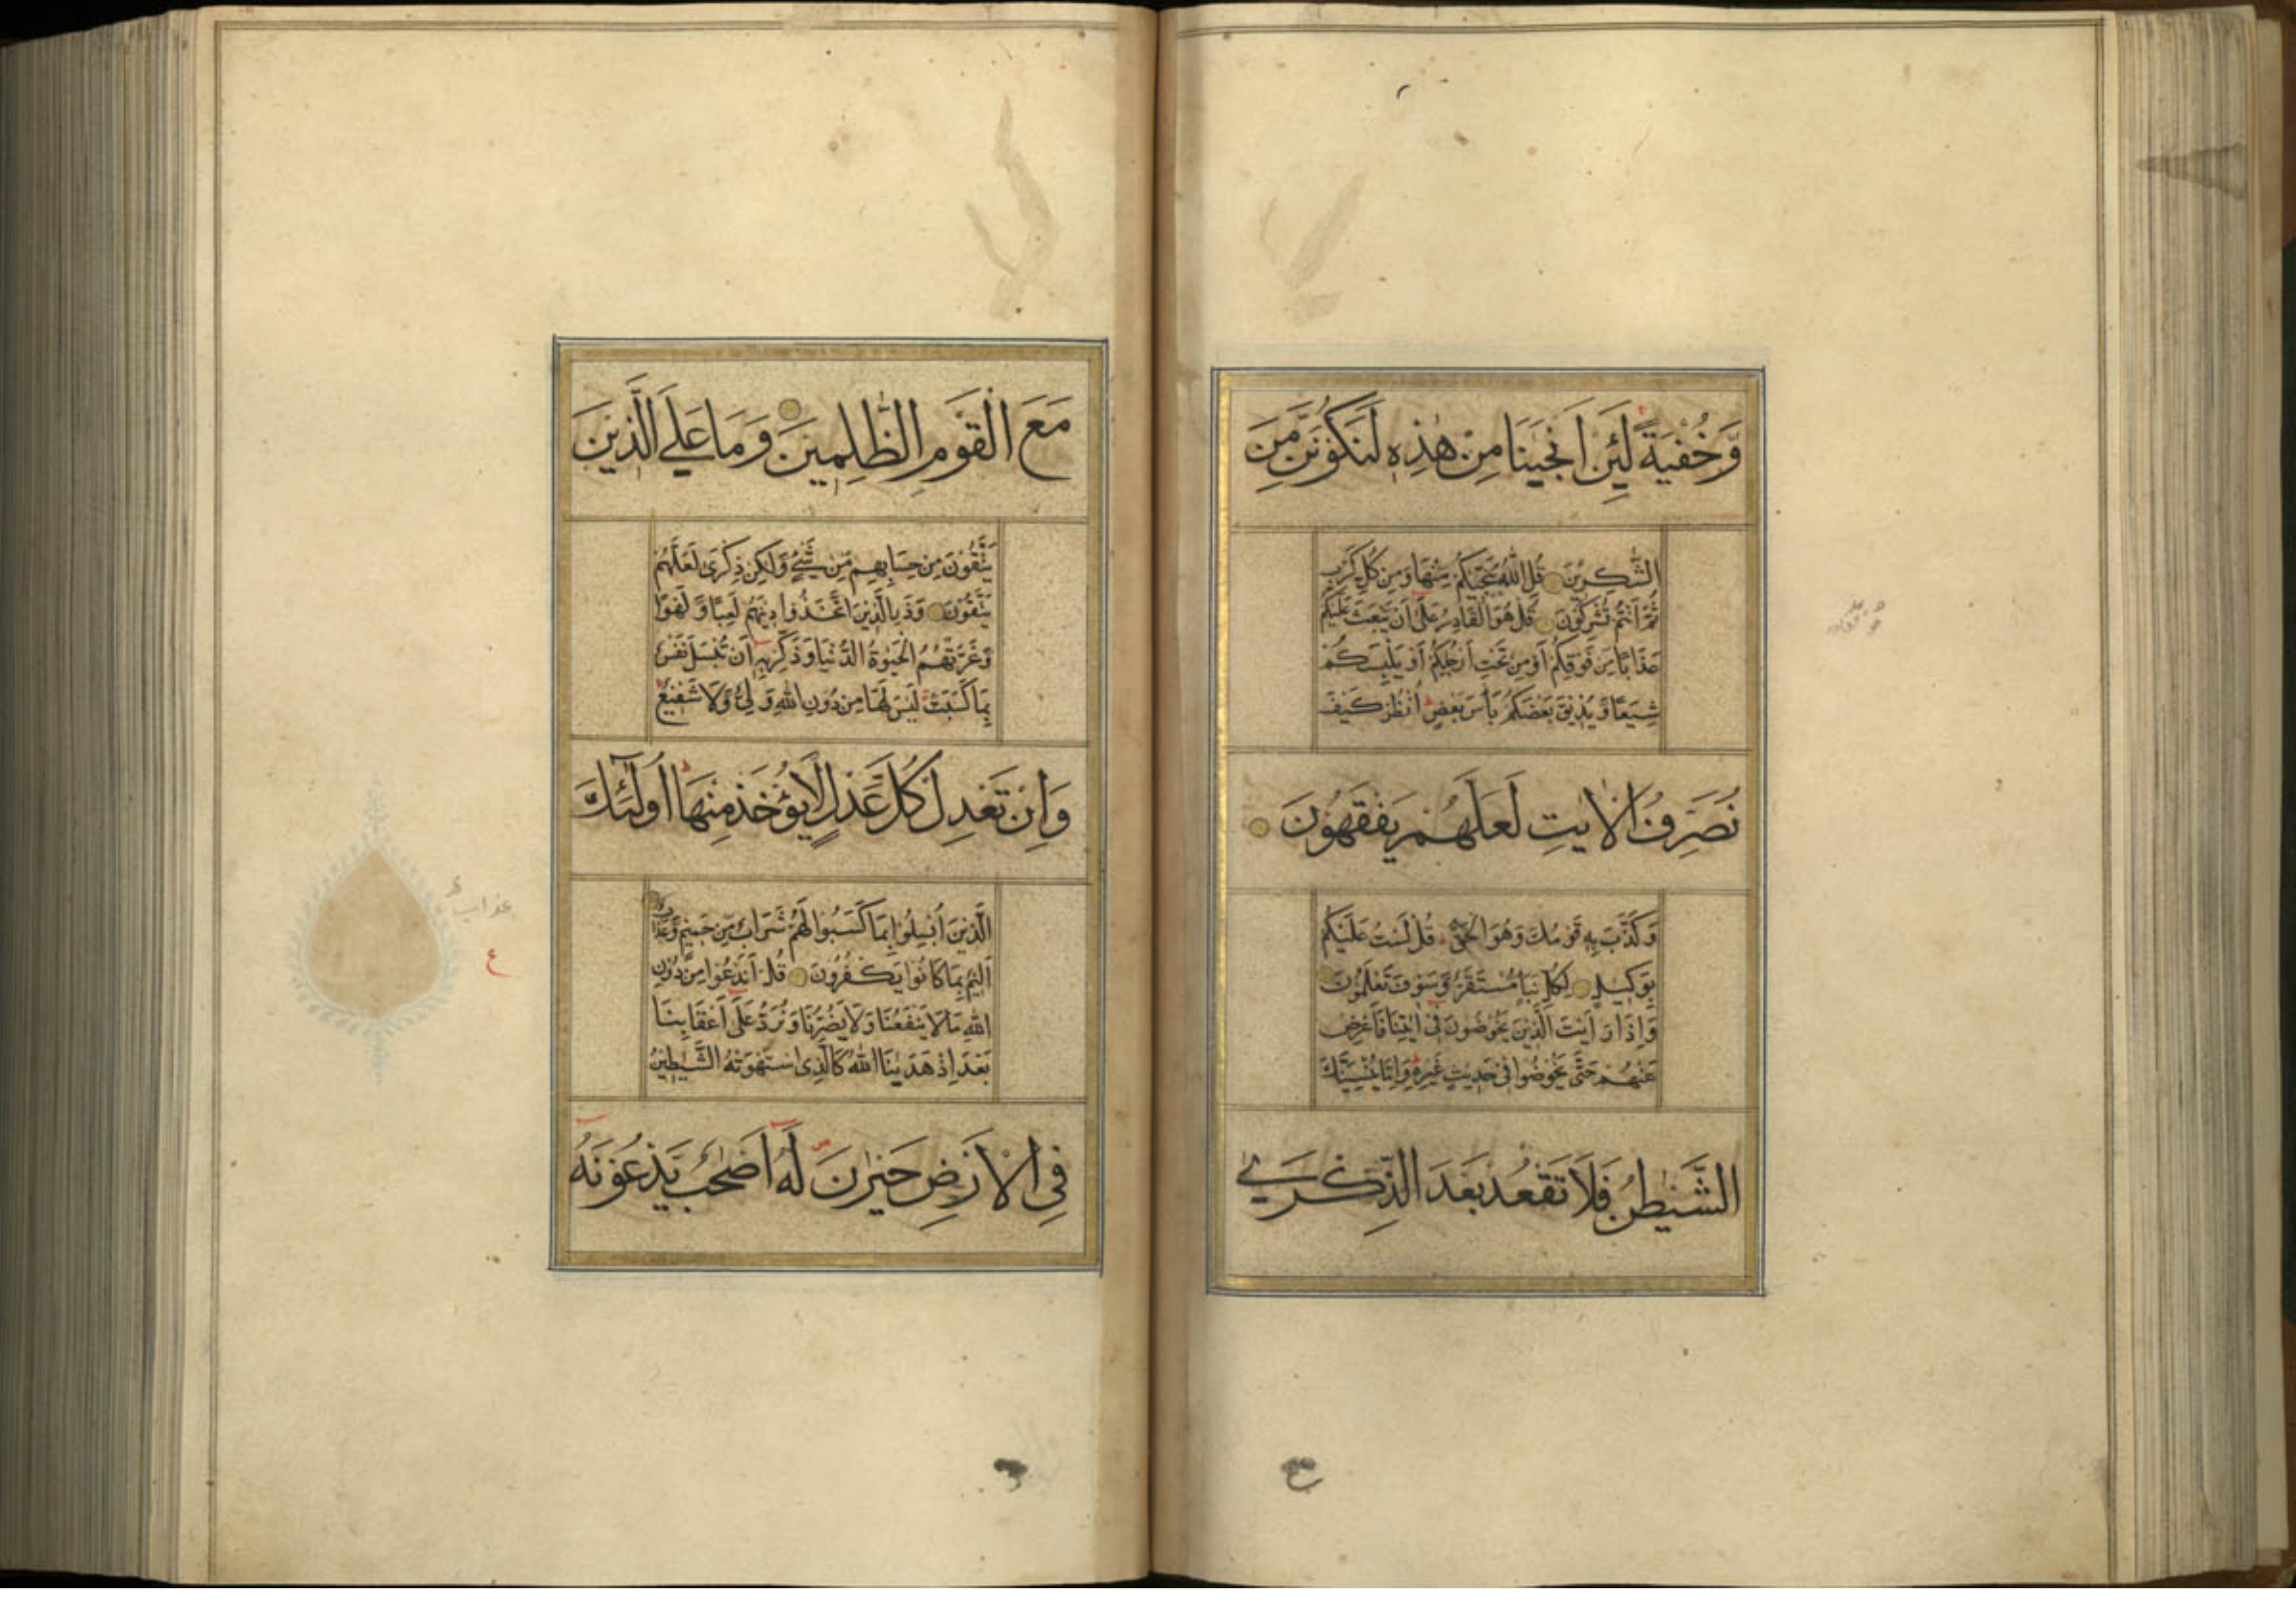 وَّخُفْيَةً لَئِنْ اَنْجٰينَا مِنْ هٰذِهٖ لَنَكُوْنَنَّ مِنَ
الشّٰكِرِيْنَ قُلِ اللّٰهُ يُنَجِّيْكُمْ مِنْهَا وَمِنْ كُلِّ كَرْبٍ
ثُمَّ اَنْتُمْ تُشْرِكُوْنَ قُلْ هُوَ الْقَادِرُ عَلٰٓى اَنْ يَّبْعَثَ عَلَيْكُمْ
عَذَابًا مِّنْ فَوْقِكُمْ اَوْ مِنْ تَحْتِ اَرْجُلِكُمْ اَوْ يَلْبِسَكُمْ
شِيَعًا وَّيُذِيْقَ بَعْضَكُمْ بَأْسَ بَعْضٍ اُنْظُرْ كَيْفَ
نُصَرِّفُ الْاٰيٰتِ لَعَلَّهُمْ يَفْقَهُوْنَ
وَكَذَّبَ بِهٖ قَوْمُكَ وَهُوَ الْحَقُّ قُلْ لَسْتُ عَلَيْكُمْ
بِوَكِيْلٍ لِكُلِّ نَبَاٍ مُّسْتَقَرٌّ وَّسَوْفَ تَعْلَمُوْنَ
وَاِذَا رَاَيْتَ الَّذِيْنَ يَخُوْضُوْنَ فِيْٓ اٰيٰتِنَا فَاَعْرِضْ
عَنْهُمْ حَتّٰى يَخُوْضُوْا فِيْ حَدِيْثٍ غَيْرِهٖ وَاِمَّا يُنْسِيَنَّكَ
الشَّيْطٰنُ فَلَا تَقْعُدْ بَعْدَ الذِّكْرٰى
مَعَ الْقَوْمِ الظّٰلِمِيْنَ وَمَا عَلَى الَّذِيْنَ
يَتَّقُوْنَ مِنْ حِسَابِهِمْ مِّنْ شَيْءٍ وَّلٰكِنْ ذِكْرٰى لَعَلَّهُمْ
يَتَّقُوْنَ وَذَرِ الَّذِيْنَ اتَّخَذُوْا دِيْنَهُمْ لَعِبًا وَّلَهْوًا
وَّغَرَّتْهُمُ الْحَيٰوةُ الدُّنْيَا وَذَكِّرْ بِهٖٓ اَنْ تُبْسَلَ نَفْسٌ
بِمَا كَسَبَتْ لَيْسَ لَهَا مِنْ دُوْنِ اللّٰهِ وَلِيٌّ وَّلَا شَفِيْعٌ
وَاِنْ تَعْدِلْ كُلَّ عَدْلٍ لَّا يُؤْخَذْ مِنْهَا اُولٰٓئِكَ
الَّذِيْنَ اُبْسِلُوْا بِمَا كَسَبُوْا لَهُمْ شَرَابٌ مِّنْ حَمِيْمٍ وَّعَذَابٌ
اَلِيْمٌ بِمَا كَانُوْا يَكْفُرُوْنَ قُلْ اَنَدْعُوْا مِنْ دُوْنِ
اللّٰهِ مَا لَا يَنْفَعُنَا وَلَا يَضُرُّنَا وَنُرَدُّ عَلٰٓى اَعْقَابِنَا
بَعْدَ اِذْ هَدٰينَا اللّٰهُ كَالَّذِى اسْتَهْوَتْهُ الشَّيٰطِيْنُ
فِى الْاَرْضِ حَيْرٰنَ لَهٗٓ اَصْحٰبٌ يَّدْعُوْنَهٗٓ
عذاب
ع